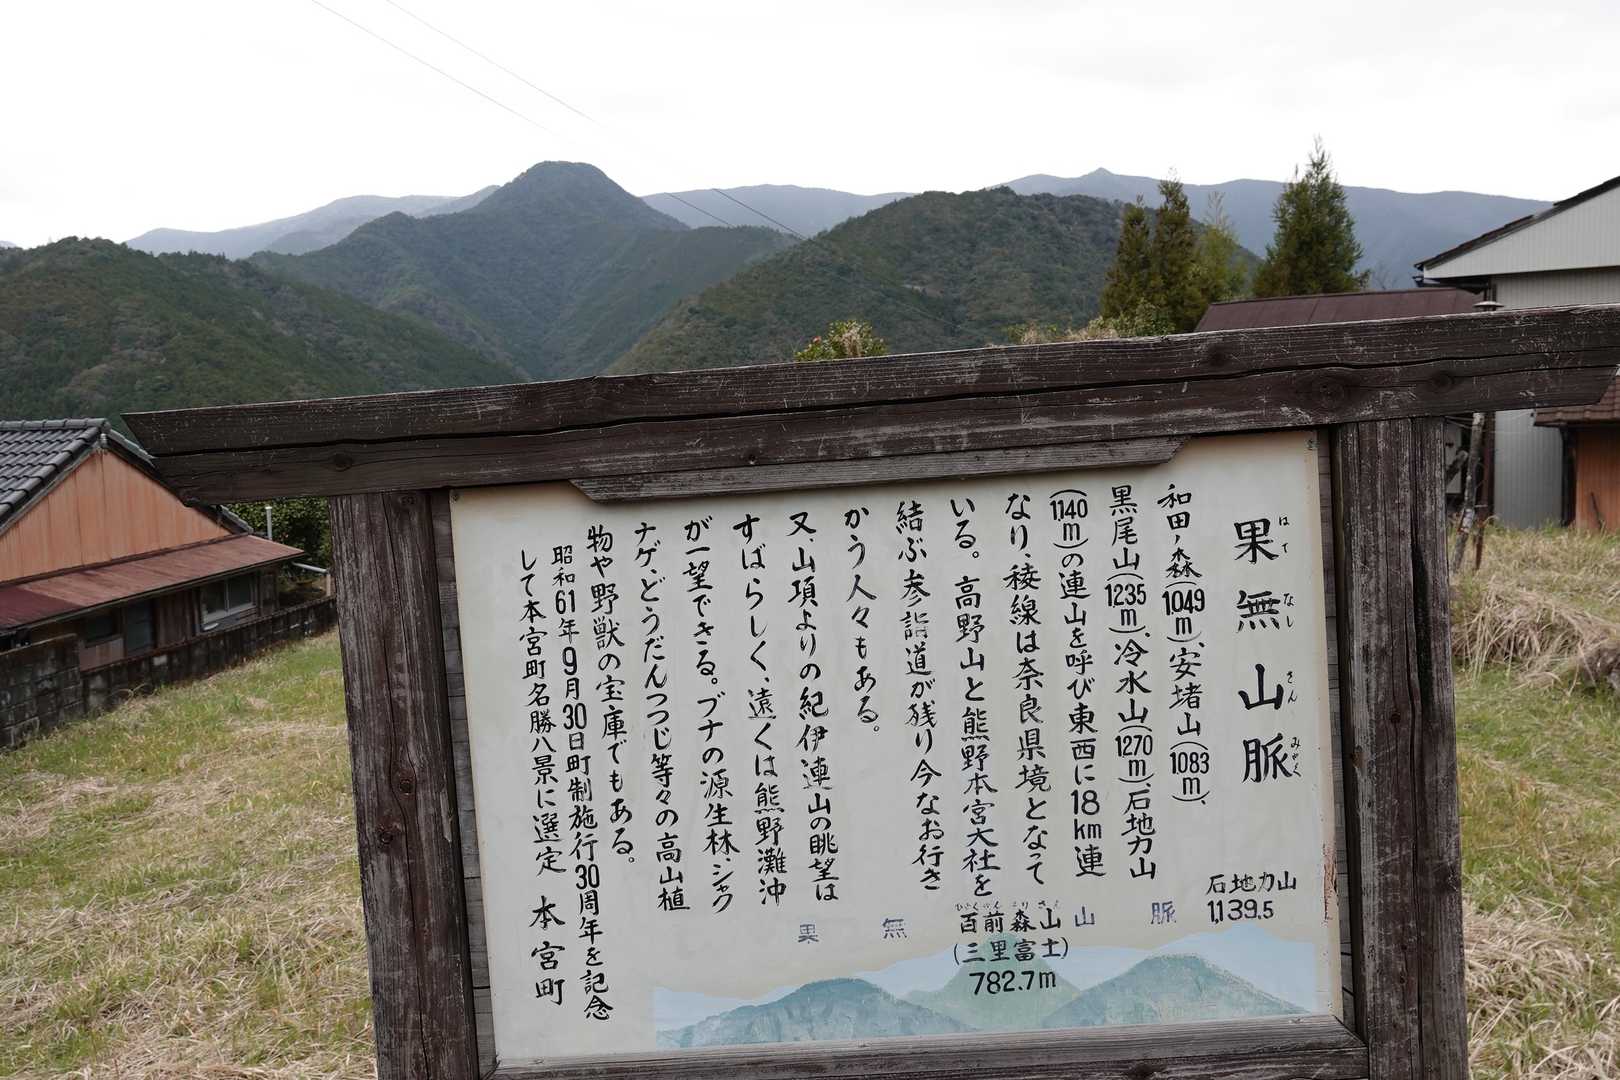 果無山脈
はてなしさんみゃく
和田ノ森(1049m)、安堵山(1083m)、
黒尾山(1235m)、冷水山(1270m)、石地力山
(1140m)の連山を呼び東西に18km連
なり、稜線は奈良県境となって
いる。高野山と熊野本宮大社を
結ぶ参詣道が残り今なお行き
かう人々もある。
又、山頂よりの紀伊連山の眺望は
すばらしく、遠くは熊野灘沖
が一望できる。ブナの源生林、シャク
ナゲ、どうだんつつじ等々の高山植
物や野獣の宝庫でもある。
昭和61年9月30日町制施行30周年を記念
して本宮町名勝八景に選定 本宮町
果無山脈
石地力山
1,139.5
百前森山
(三里富士)
782.7m